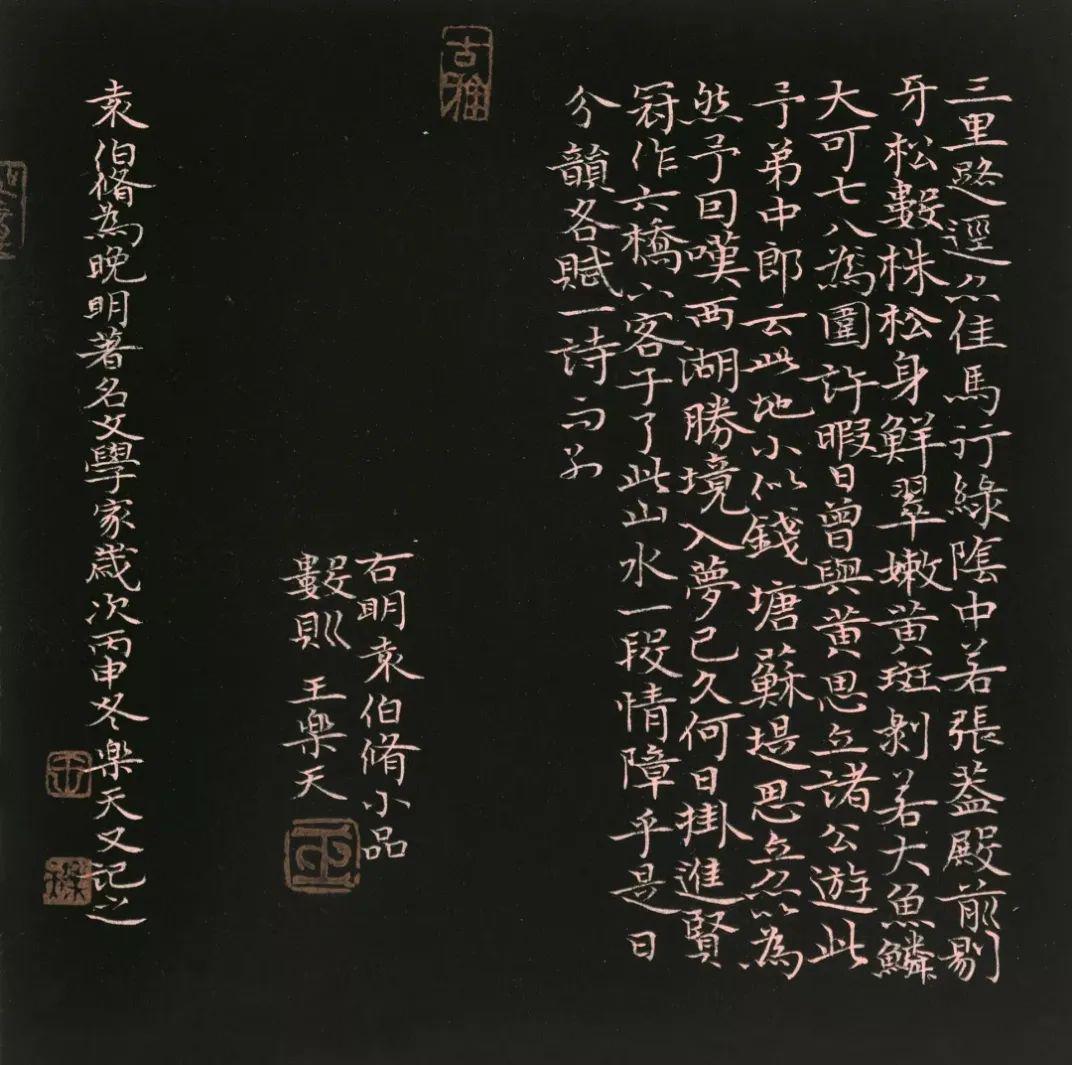 三里路逕亦佳馬行綠陰中若張蓋殿前剔
牙松數株松身鮮翠嫩黃斑剝若大魚鱗
大可七八爲圍許暇日曾與黃思立諸公游此
予弟中郎云此地小似錢塘蘇堤思立亦以為
然予回嘆西湖勝境入夢已久何日掛進賢
冠作六橋下客子了此山水一段情障乎是日
分韻各賦一詩而別
右明袁伯脩小品
數則 王樂天
袁伯脩為晚明著名文學家歲次丙申冬樂天又記之
古雅
王
王